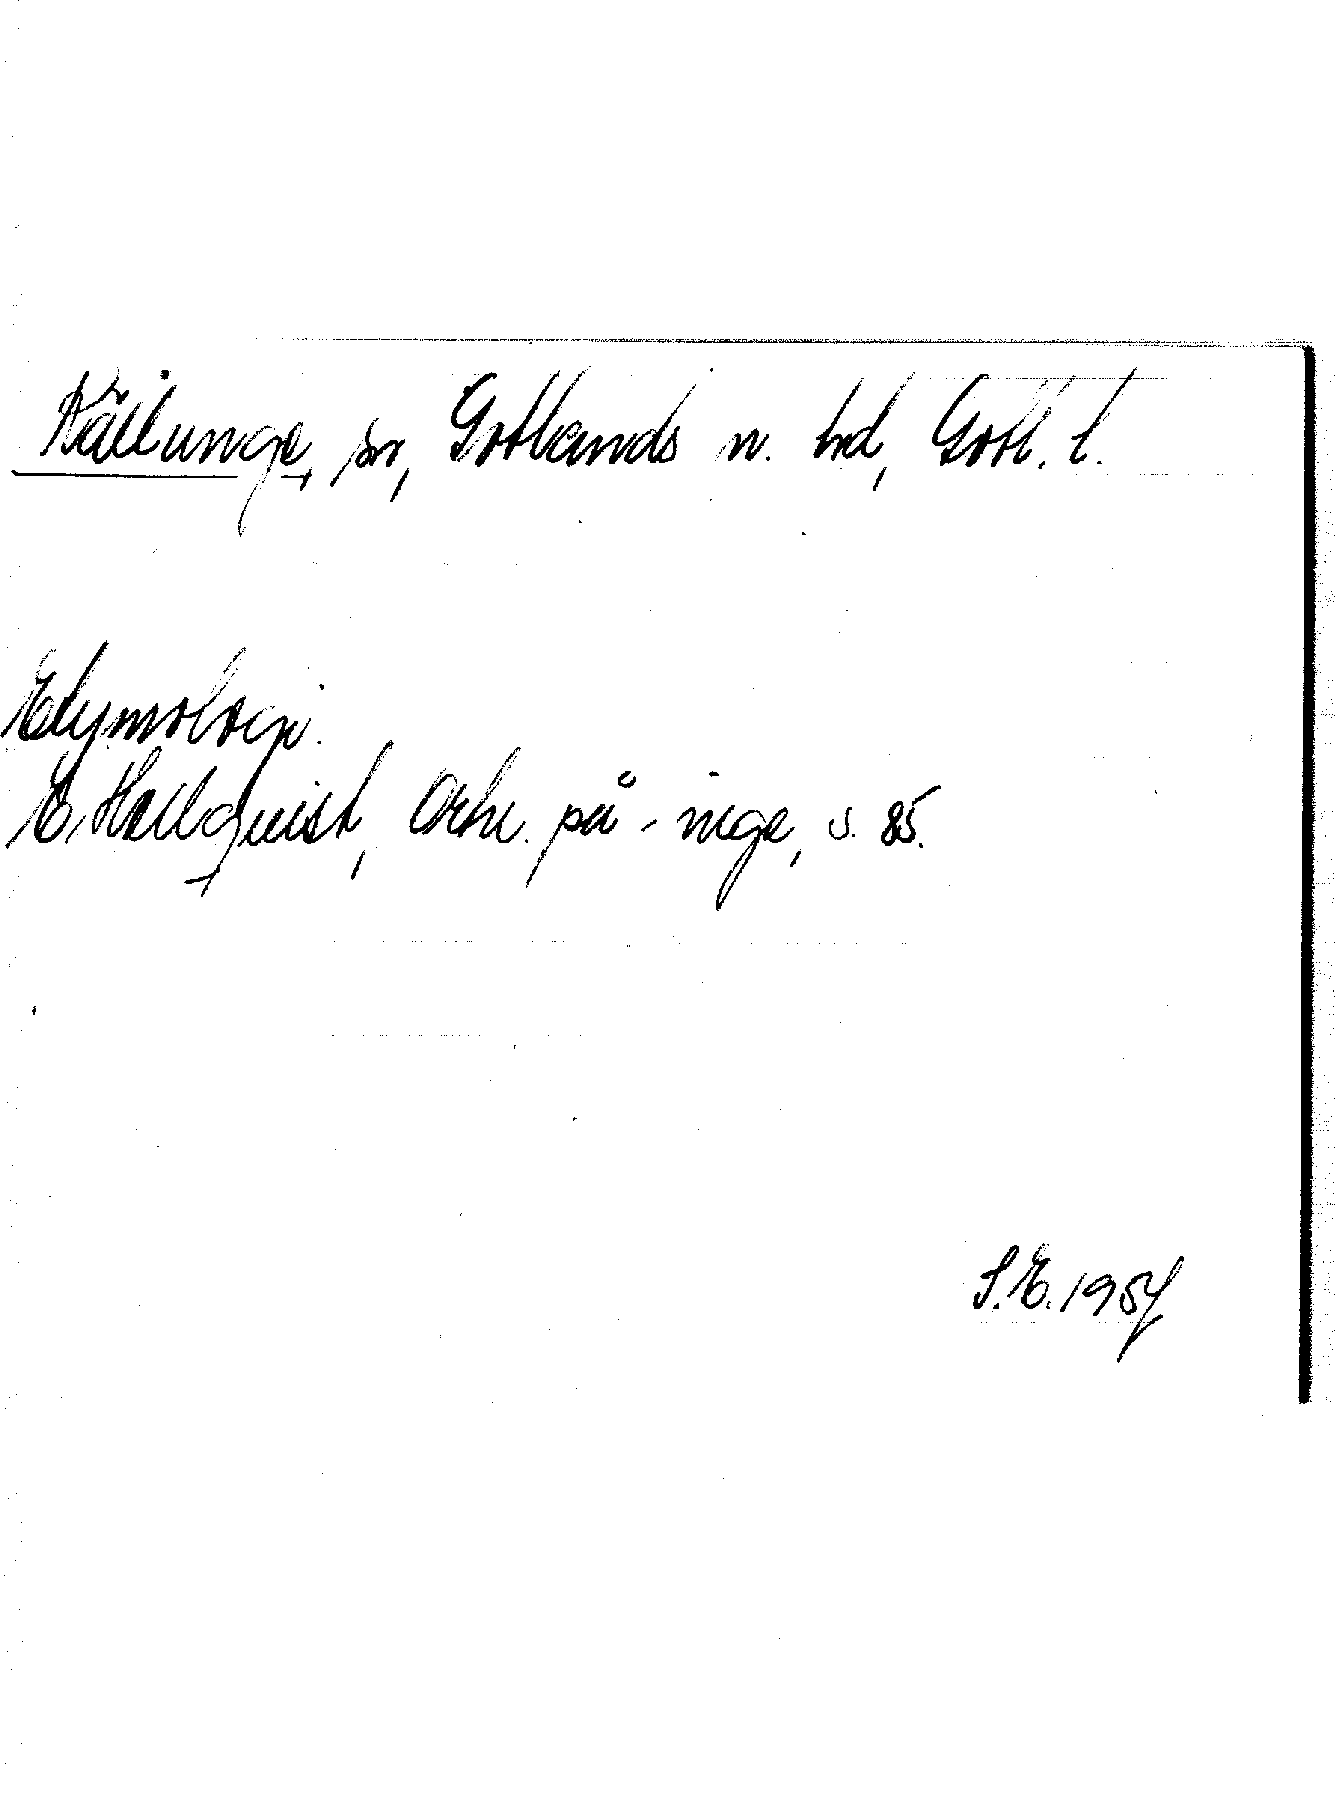 Källunge, sn, Gotlands n. hd, Gotl. l.
Etymologi.
E. Hellquist, Ortn. på -inge, s. 85.
S. E. 1954